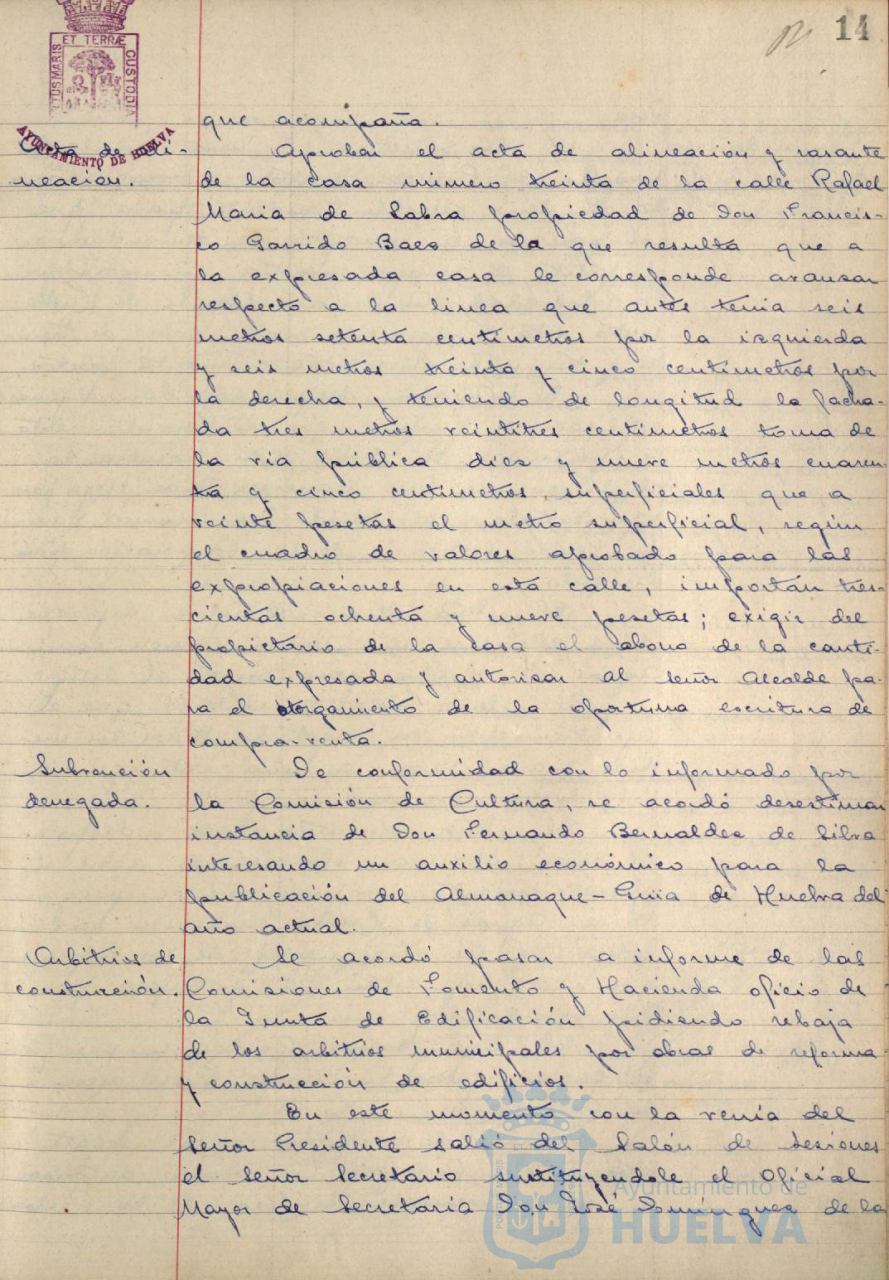 14
ET TERRÆ
PORTUS MARIS
CUSTODIA
AYUNTAMIENTO DE HUELVA
que acompaña.
Acta de ali-
neación.
Aprobar el acta de alineación y rasante
de la casa número treinta de la calle Rafael
Maria de Labra propiedad de Don Francis-
co Garrido Baes de la que resulta que a
la expresada casa le corresponde avanzar
respecto a la linea que antes tenia seis
metros setenta centimetros por la izquierda
y seis metros treinta y cinco centimetros por
la derecha, y teniendo de longitud la facha-
da tres metros veintitres centimetros toma de
la via pública diez y nueve metros cuaren-
ta y cinco centimetros, superficiales que a
veinte pesetas el metro superficial, según
el cuadro de valores aprobado para las
expropiaciones en esta calle, importán tres-
cientas ochenta y nueve pesetas; exigir del
propietario de la casa el abono de la canti-
dad expresada y autorisar al Señor Alcalde pa-
ra el otorgamiento de la oportuna escritura de
compra-venta.
Subvención
denegada.
De conformidad con lo informado por
la Comisión de Cultura, se acordó desestimar
instancia de Don Fernando Bernaldez de Silva
interesando un auxilio económico para la
publicación del Almanaque-Guia de Huelva del
año actual.
Arbitrios de
construcción.
Se acordó pasar a informe de las
Comisiones de Fomento y Hacienda oficio de
la Junta de Edificación pidiendo rebaja
de los arbitrios municipales por obras de reforma
y construcción de edificios.
En este momento con la venia del
Señor Presidente salió del Salón de Sesiones
el Señor Secretario sustituyendole el Oficial
Mayor de Secretaria Don José Dominguez de la
Ayuntamiento de
HUELVA